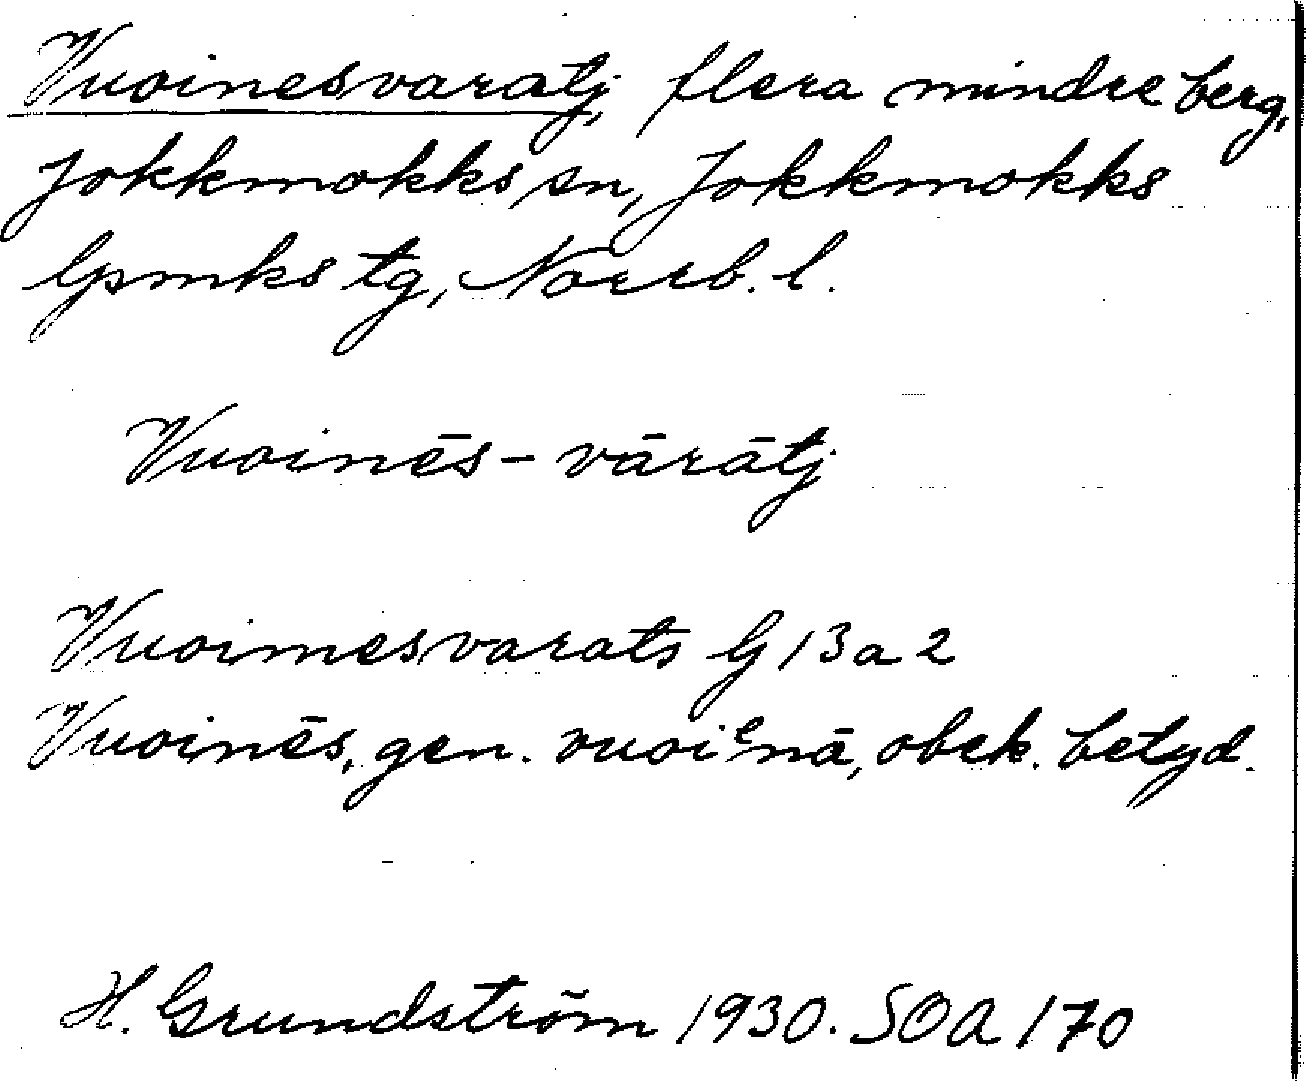 Vuoinesvaratj, flera mindre berg,
Jokkmokks sn, Jokkmokks
lpmks tg, Norrb. l.
Vuoinēs - vārātj
Vuoimesvarats G 13 a 2
Vuoinēs, gen. vuoiᵉnā, obek. betyd.
H. Grundström 1930. SOA 170